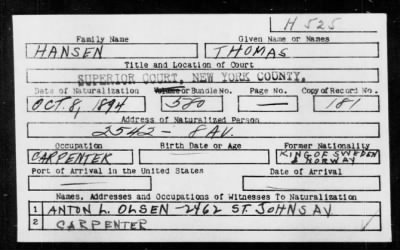 H 525
Family Name Given Name or Names
HANSEN THOMAS
Title and Location of Court
SUPERIOR COURT, NEW YORK COUNTY.
Date of Naturalization Volume or Bundle No. Page No. Copy of Record No.
OCT. 8, 1894 580 — 181
Address of Naturalized Person
2542 - 8 AV.
Occupation Birth Date or Age Former Nationality
CARPENTER KING OF SWEDEN & NORWAY
Port of Arrival in the United States Date of Arrival
Names, Addresses and Occupations of Witnesses To Naturalization
1 ANTON L. OLSEN - 2462 ST. JOHNS AV
2 CARPENTER